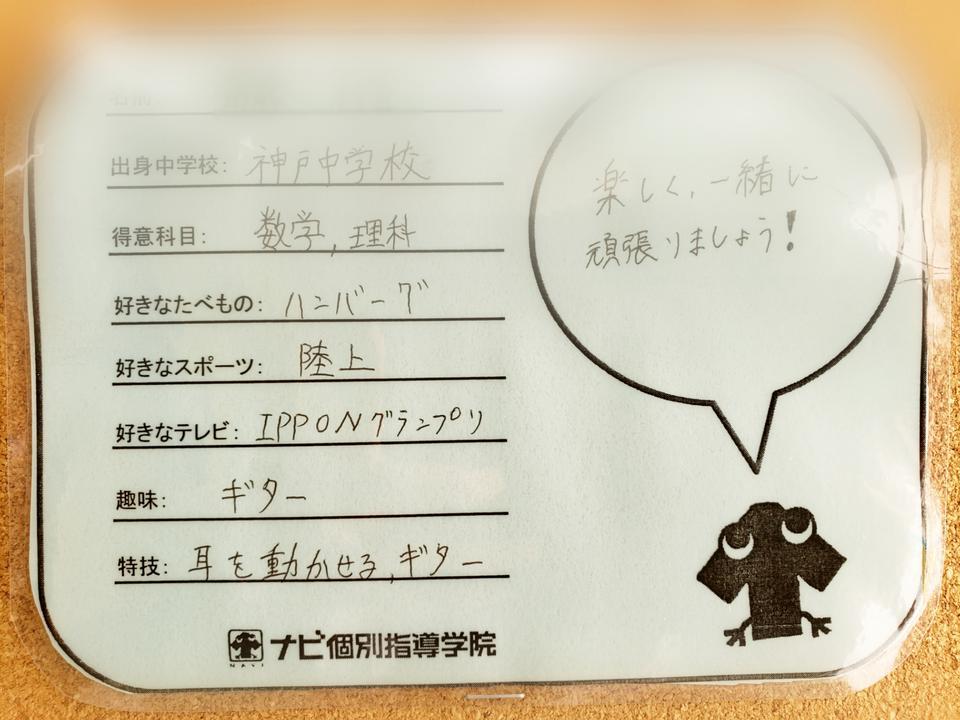 出身中学校: 神戸中学校
得意科目: 数学, 理科
好きなたべもの: ハンバーグ
好きなスポーツ: 陸上
好きなテレビ: IPPONグランプリ
趣味: ギター
特技: 耳を動かせる, ギター
楽しく、一緒に
頑張りましょう!
NAVI
ナビ個別指導学院